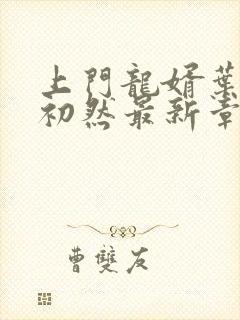 上門龍婿葉
初然最新章
曹雙友